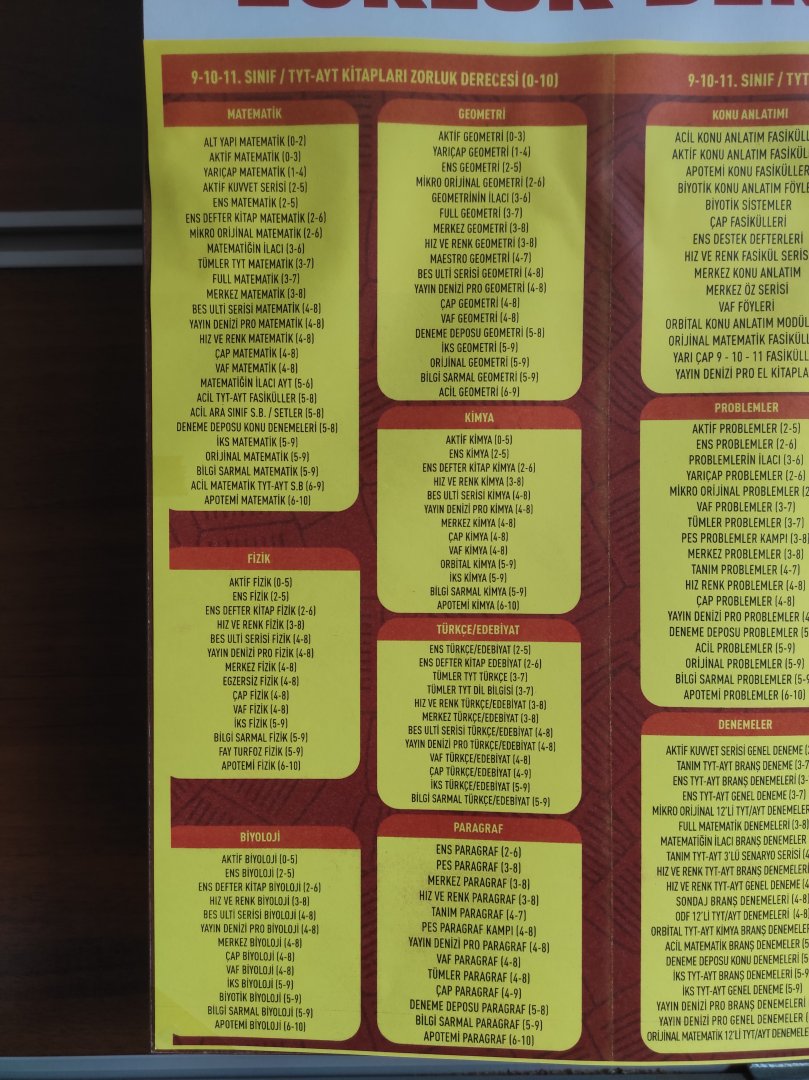 9-10-11. SINIF / TYT-AYT KİTAPLARI ZORLUK DERECESİ (0-10)
MATEMATİK
ALT YAPI MATEMATİK (0-2)
AKTİF MATEMATİK (0-3)
YARIÇAP MATEMATİK (1-4)
AKTİF KUVVET SERİSİ (2-5)
ENS MATEMATİK (2-5)
ENS DEFTER KİTAP MATEMATİK (2-6)
MİKRO ORİJİNAL MATEMATİK (2-6)
MATEMATİĞİN İLACI (3-6)
TÜMLER TYT MATEMATİK (3-7)
FULL MATEMATİK (3-7)
MERKEZ MATEMATİK (3-8)
BES ULTİ SERİSİ MATEMATİK (4-8)
YAYIN DENİZİ PRO MATEMATİK (4-8)
HIZ VE RENK MATEMATİK (4-8)
ÇAP MATEMATİK (4-8)
VAF MATEMATİK (4-8)
MATEMATİĞİN İLACI AYT (5-6)
ACİL TYT-AYT FASİKÜLLER (5-8)
ACİL ARA SINIF S.B. / SETLER (5-8)
DENEME DEPOSU KONU DENEMELERİ (5-8)
İKS MATEMATİK (5-9)
ORİJİNAL MATEMATİK (5-9)
BİLGİ SARMAL MATEMATİK (5-9)
ACİL MATEMATİK TYT-AYT S.B (6-9)
APOTEMİ MATEMATİK (6-10)
FİZİK
AKTİF FİZİK (0-5)
ENS FİZİK (2-5)
ENS DEFTER KİTAP FİZİK (2-6)
HIZ VE RENK FİZİK (3-8)
BES ULTİ SERİSİ FİZİK (4-8)
YAYIN DENİZİ PRO FİZİK (4-8)
MERKEZ FİZİK (4-8)
EGZERSİZ FİZİK (4-8)
ÇAP FİZİK (4-8)
VAF FİZİK (4-8)
İKS FİZİK (5-9)
BİLGİ SARMAL FİZİK (5-9)
FAY TURFOZ FİZİK (5-9)
APOTEMİ FİZİK (6-10)
BİYOLOJİ
AKTİF BİYOLOJİ (0-5)
ENS BİYOLOJİ (2-5)
ENS DEFTER KİTAP BİYOLOJİ (2-6)
HIZ VE RENK BİYOLOJİ (3-8)
BES ULTİ SERİSİ BİYOLOJİ (4-8)
YAYIN DENİZİ PRO BİYOLOJİ (4-8)
MERKEZ BİYOLOJİ (4-8)
ÇAP BİYOLOJİ (4-8)
VAF BİYOLOJİ (4-8)
İKS BİYOLOJİ (5-9)
BİYOTİK BİYOLOJİ (5-9)
BİLGİ SARMAL BİYOLOJİ (5-9)
APOTEMİ BİYOLOJİ (6-10)
GEOMETRİ
AKTİF GEOMETRİ (0-3)
YARIÇAP GEOMETRİ (1-4)
ENS GEOMETRİ (2-5)
MİKRO ORİJİNAL GEOMETRİ (2-6)
GEOMETRİNİN İLACI (3-6)
FULL GEOMETRİ (3-7)
MERKEZ GEOMETRİ (3-8)
HIZ VE RENK GEOMETRİ (3-8)
MAESTRO GEOMETRİ (4-7)
BES ULTİ SERİSİ GEOMETRİ (4-8)
YAYIN DENİZİ PRO GEOMETRİ (4-8)
ÇAP GEOMETRİ (4-8)
VAF GEOMETRİ (4-8)
DENEME DEPOSU GEOMETRİ (5-8)
İKS GEOMETRİ (5-9)
ORİJİNAL GEOMETRİ (5-9)
BİLGİ SARMAL GEOMETRİ (5-9)
ACİL GEOMETRİ (6-9)
KİMYA
AKTİF KİMYA (0-5)
ENS KİMYA (2-5)
ENS DEFTER KİTAP KİMYA (2-6)
HIZ VE RENK KİMYA (3-8)
BES ULTİ SERİSİ KİMYA (4-8)
YAYIN DENİZİ PRO KİMYA (4-8)
MERKEZ KİMYA (4-8)
ÇAP KİMYA (4-8)
VAF KİMYA (4-8)
ORBİTAL KİMYA (5-9)
İKS KİMYA (5-9)
BİLGİ SARMAL KİMYA (5-9)
APOTEMİ KİMYA (6-10)
TÜRKÇE/EDEBİYAT
ENS TÜRKÇE/EDEBİYAT (2-5)
ENS DEFTER KİTAP EDEBİYAT (2-6)
TÜMLER TYT TÜRKÇE (3-7)
TÜMLER TYT DİL BİLGİSİ (3-7)
HIZ VE RENK TÜRKÇE/EDEBİYAT (3-8)
MERKEZ TÜRKÇE/EDEBİYAT (3-8)
BES ULTİ SERİSİ TÜRKÇE/EDEBİYAT (4-8)
YAYIN DENİZİ PRO TÜRKÇE/EDEBİYAT (4-8)
VAF TÜRKÇE/EDEBİYAT (4-8)
ÇAP TÜRKÇE/EDEBİYAT (4-9)
İKS TÜRKÇE/EDEBİYAT (5-9)
BİLGİ SARMAL TÜRKÇE/EDEBİYAT (5-9)
PARAGRAF
ENS PARAGRAF (2-6)
PES PARAGRAF (3-8)
MERKEZ PARAGRAF (3-8)
HIZ VE RENK PARAGRAF (3-8)
TANIM PARAGRAF (4-7)
PES PARAGRAF KAMPI (4-8)
YAYIN DENİZİ PRO PARAGRAF (4-8)
VAF PARAGRAF (4-8)
TÜMLER PARAGRAF (4-8)
ÇAP PARAGRAF (4-9)
DENEME DEPOSU PARAGRAF (5-8)
BİLGİ SARMAL PARAGRAF (5-9)
APOTEMİ PARAGRAF (6-10)
9-10-11. SINIF / TYT
KONU ANLATIMI
ACİL KONU ANLATIM FASİKÜLL
AKTİF KONU ANLATIM FASİKÜL
APOTEMİ KONU FASİKÜLLER
BİYOTİK KONU ANLATIM FÖYLE
BİYOTİK SİSTEMLER
ÇAP FASİKÜLLERİ
ENS DESTEK DEFTERLERİ
HIZ VE RENK FASİKÜL SERİS
MERKEZ KONU ANLATIM
MERKEZ ÖZ SERİSİ
VAF FÖYLERİ
ORBİTAL KONU ANLATIM MODÜL
ORİJİNAL MATEMATİK FASİKÜLL
YARI ÇAP 9 - 10 - 11 FASİKÜLL
YAYIN DENİZİ PRO EL KİTAPLA
PROBLEMLER
AKTİF PROBLEMLER (2-5)
ENS PROBLEMLER (2-6)
PROBLEMLERİN İLACI (3-6)
YARIÇAP PROBLEMLER (2-6)
MİKRO ORİJİNAL PROBLEMLER (2
VAF PROBLEMLER (3-7)
TÜMLER PROBLEMLER (3-7)
PES PROBLEMLER KAMPI (3-8)
MERKEZ PROBLEMLER (3-8)
TANIM PROBLEMLER (4-7)
HIZ RENK PROBLEMLER (4-8)
ÇAP PROBLEMLER (4-8)
YAYIN DENİZİ PRO PROBLEMLER (4
DENEME DEPOSU PROBLEMLER (5
ACİL PROBLEMLER (5-9)
ORİJİNAL PROBLEMLER (5-9)
BİLGİ SARMAL PROBLEMLER (5-9
APOTEMİ PROBLEMLER (6-10)
DENEMELER
AKTİF KUVVET SERİSİ GENEL DENEME (2
TANIM TYT-AYT BRANŞ DENEME (3-7
ENS TYT-AYT BRANŞ DENEMELERİ (3-
ENS TYT-AYT GENEL DENEME (3-7)
MİKRO ORİJİNAL 12'Lİ TYT/AYT DENEMELER
FULL MATEMATİK DENEMELERİ (3-8)
MATEMATİĞİN İLACI BRANŞ DENEMELER
TANIM TYT-AYT 3'LÜ SENARYO SERİSİ (4
HIZ VE RENK TYT-AYT BRANŞ DENEMELERİ
HIZ VE RENK TYT-AYT GENEL DENEME (4
SONDAJ BRANŞ DENEMELERİ (4-8)
ODF 12'Lİ TYT/AYT DENEMELERİ (4-8)
ORBİTAL TYT-AYT KİMYA BRANŞ DENEMELER
ACİL MATEMATİK BRANŞ DENEMELER (5
DENEME DEPOSU KONU DENEMELERİ (5-
İKS TYT-AYT BRANŞ DENEMELERİ (5-9
İKS TYT-AYT GENEL DENEME (5-9)
YAYIN DENİZİ PRO BRANŞ DENEMELERİ
YAYIN DENİZİ PRO GENEL DENEMELER (
ORİJİNAL MATEMATİK 12'Lİ TYT/AYT DENEMELE